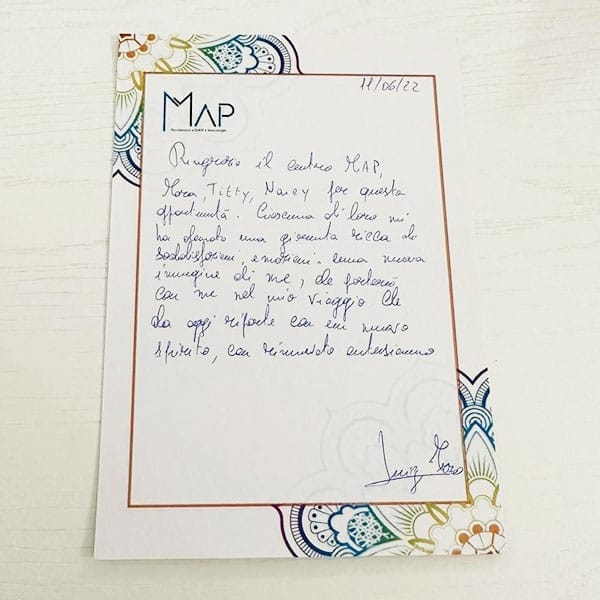 11/06/22
MAP
Ringrazio il centro MAP,
Mara, Titty, Nancy per questa
opportunità. Ciascuna di loro mi
ha donato una giornata ricca di
soddisfazioni, emozioni e una nuova
immagine di me, che porterò
con me nel mio viaggio che
da oggi riparte con un nuovo
spirito, con rinnovato entusiasmo